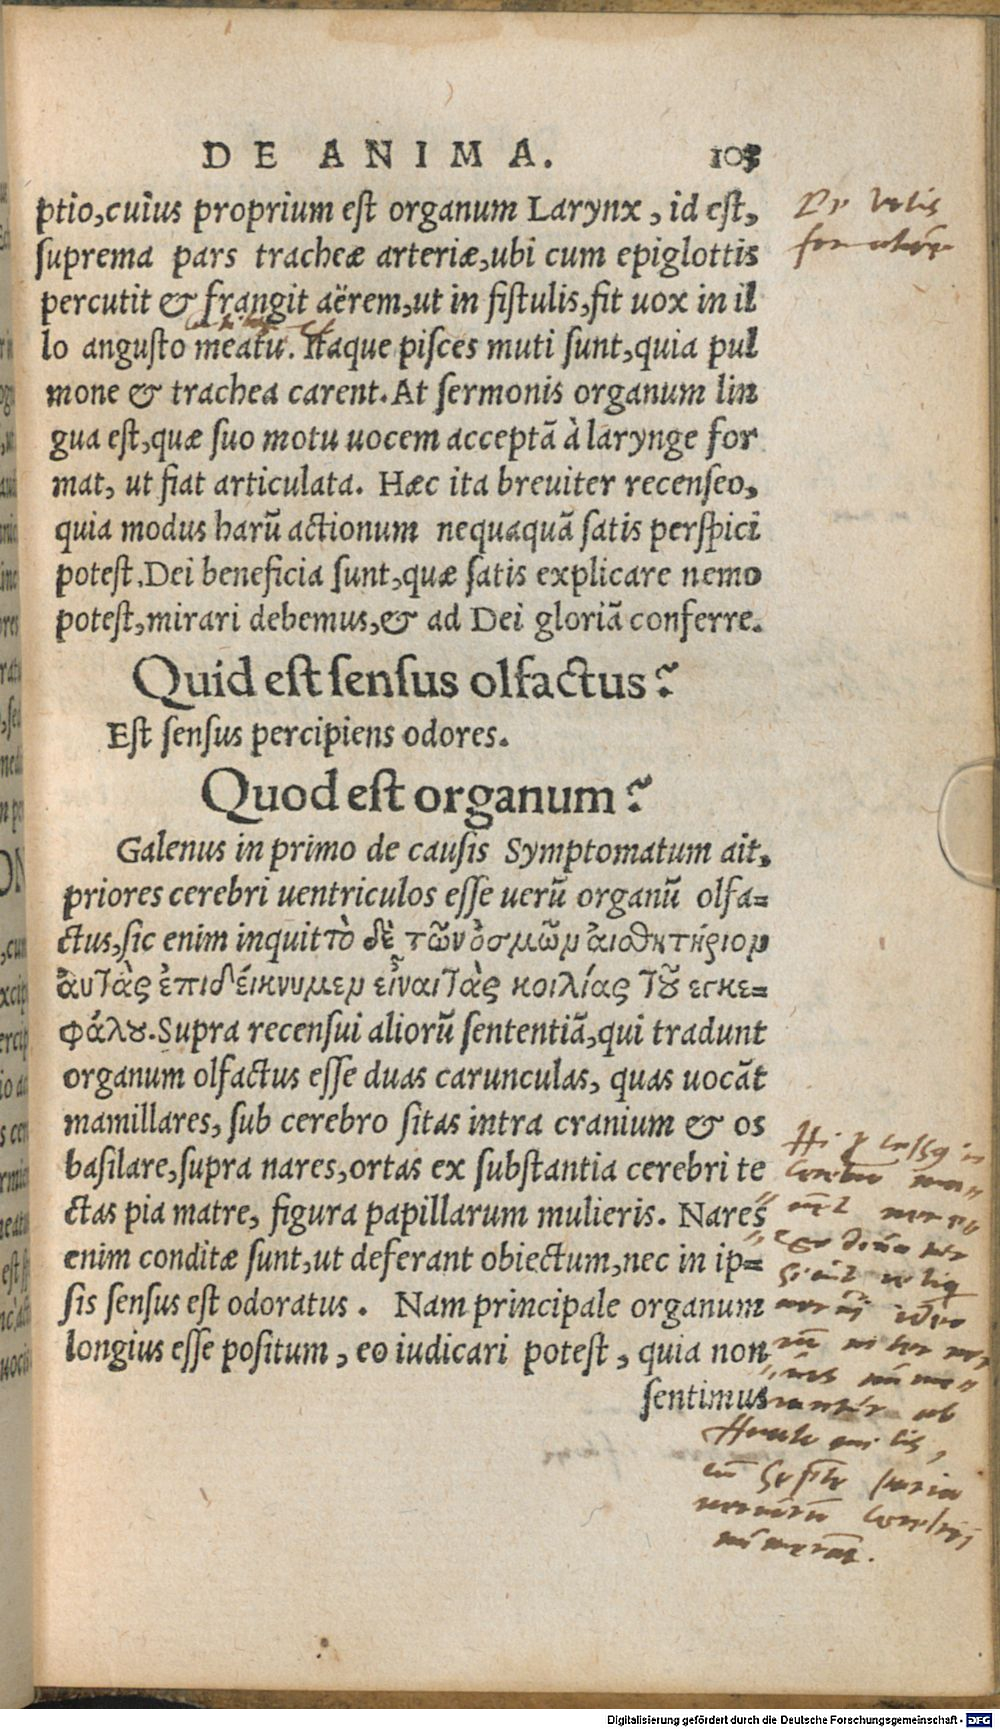 DE ANIMA. 103
ptio,cuius proprium est organum Larynx, id est,
suprema pars tracheæ arteriæ,ubi cum epiglottis
percutit & frangit aërem,ut in fistulis,fit uox in il
lo angusto meatu. Itaque pisces muti sunt,quia pul
mone & trachea carent. At sermonis organum lin
gua est,quæ suo motu uocem acceptã à larynge for
mat, ut fiat articulata. Hæc ita breuiter recenseo,
quia modus harũ actionum nequaquã satis perspici
potest. Dei beneficia sunt,quæ satis explicare nemo
potest,mirari debemus,& ad Dei gloriã conferre.
Quid est sensus olfactus?
Est sensus percipiens odores.
Quod est organum?
Galenus in primo de causis Symptomatum ait,
priores cerebri uentriculos esse uerũ organũ olfa=
ctus,sic enim inquit τὸ δὲ τῶν ὀσμῶν αἰσθητήριον
αὐτὰς ἐπιδείκνυμεν εἶναι τὰς κοιλίας τȣ͂ εγκε=
φάλȣ. Supra recensui aliorũ sententiã,qui tradunt
organum olfactus esse duas carunculas, quas uocãt
mamillares, sub cerebro sitas intra cranium & os
basilare,supra nares,ortas ex substantia cerebri te
ctas pia matre, figura papillarum mulieris. Nares
enim conditæ sunt,ut deferant obiectum,nec in ip=
sis sensus est odoratus. Nam principale organum
longius esse positum, eo iudicari potest, quia non
sentimus
Digitalisierung gefördert durch die Deutsche Forschungsgemeinschaft - DFG